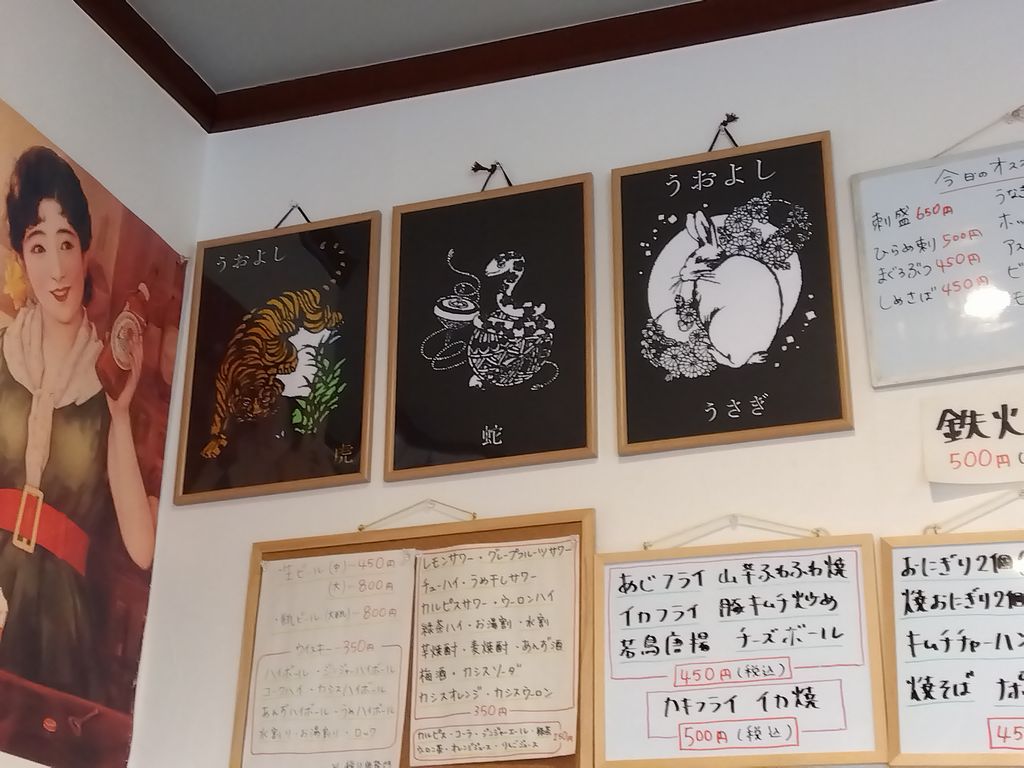 うおよし
虎
蛇
うおよし
うさぎ
今日のオス
刺盛 650円
ひらめ刺り 500円
まぐろぶつ 450円
しめさば 450円
うな
ホッ
鉄火
500円
生ビール (中)-450円
(大)-800円
瓶ビール (大瓶)-800円
ウイスキー-350円
ハイボール・ジンジャーハイボール
コークハイ・カシスハイボール
あんずハイボール・うめハイボール
水割り・お湯割り・ロック
レモンサワー・グレープフルーツサワー
チューハイ・うめ干しサワー
カルピスサワー・ウーロンハイ
緑茶ハイ・お湯割・水割
芋焼酎・麦焼酎・あんず酒
梅酒・カシスソーダ
カシスオレンジ・カシスウーロン
350円
カルピス・コーラ・ジンジャーエール・緑茶
ウーロン茶・オレンジジュース・りんごジュース
250円
あじフライ 山芋ふわふわ焼
イカフライ 豚キムチ炒め
若鳥唐揚 チーズボール
450円(税込)
カキフライ イカ焼
500円(税込)
おにぎり2個
焼おにぎり2個
キムチチャーハン
焼そば
45